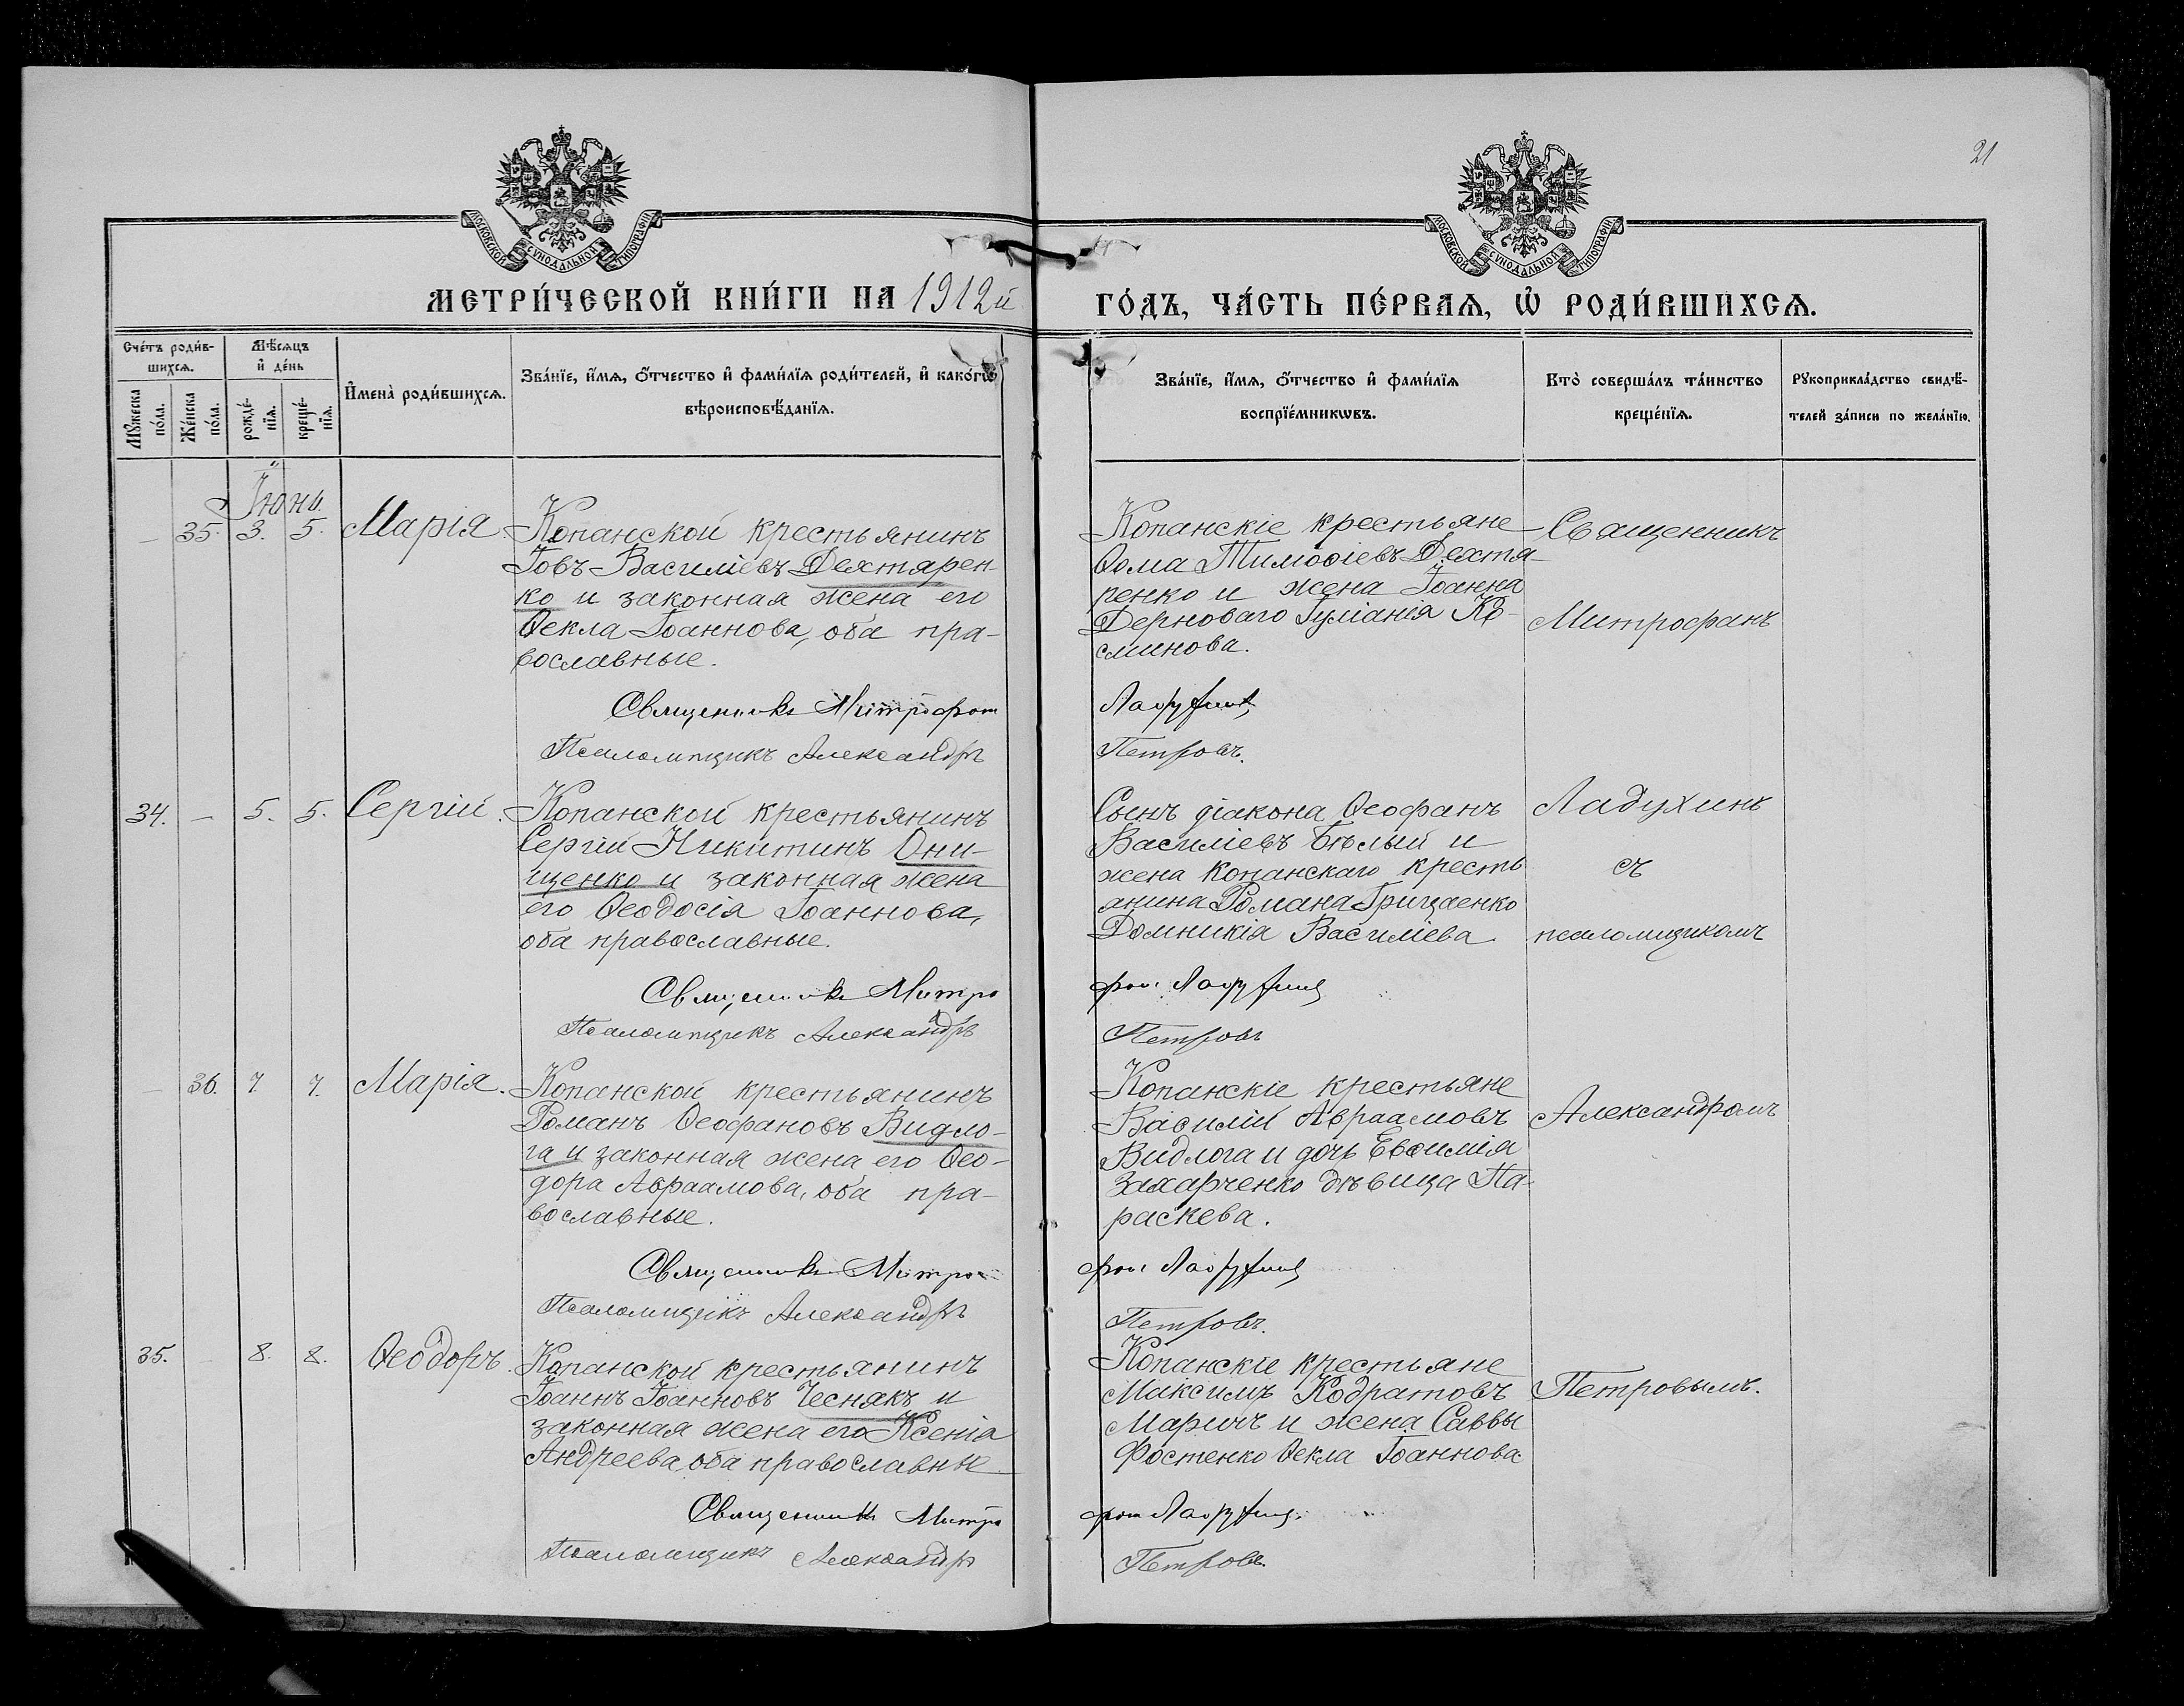 21
МОСКОВСКОЙ СѴНОДАЛЬНОЙ ТИПОГРАФІИ
МОСКОВСКОЙ СѴНОДАЛЬНОЙ ТИПОГРАФІИ
МЕТРИ́ЧЕСКОЙ КНИ́ГИ НА 1912й ГО́ДЪ, ЧА́СТЬ ПЕ́РВАЯ, Ѡ РОДИ́ВШИХСЯ.
Сче́тъ роди́в-
шихсѧ.
Мꙋ́жеска по́ла.
Же́нска по́ла.
Мѣ́сѧцъ и҆ де́нь
рожде́-нїѧ.
креще́-нїѧ.
И҆мена̀ роди́вшихсѧ.
Зва́нїе, и҆́мѧ, ѻ҆́тчество и҆ фами́лїѧ роди́телей, и҆ како́гѡ
вѣроисповѣ́данїѧ.
Зва́нїе, и҆́мѧ, ѻ҆́тчество и҆ фами́лїѧ
воспрїе́мникѡвъ.
Кто̀ соверша́лъ та́инство
креще́нїѧ.
Рꙋкоприкла́дство свидѣ́-
телей за́писи по жела́нїю.
Іюнь.
— 35. 3. 5. Марія
Копанской крестьянинъ
Іовъ Василіевъ Дехтярен-
ко и законная жена его
Ѳекла Іоаннова, оба пра-
вославные.
Священникъ Митрофанъ
Псаломщикъ Александръ
Копанскіе крестьяне
Ѳома Тимоѳіевъ Дехтя-
ренко и жена Іоанна
Дерноваго Іуліанія Ко-
смінова.
Ладухинъ
Петровъ.
Священникъ
Митрофанъ
34. — 5. 5. Сергій.
Копанской крестьянинъ
Сергій Никитинъ Они-
щенко и законная жена
его Ѳеодосія Іоаннова,
оба православные.
Священникъ Митро
Псаломщикъ Александръ
Сынъ діакона Ѳеофанъ
Василіевъ Бѣлый и
жена копанскаго кресть
янина Романа Грицаенко
Домникія Василіева.
фанъ Ладухинъ
Петровъ
Ладухинъ
съ
псаломщикомъ
— 36. 7. 7. Марія.
Копанской крестьянинъ
Романъ Ѳеофановъ Видло-
га и законная жена его Ѳео-
дора Авраамова, оба пра-
вославные.
Священникъ Митро
Псаломщикъ Александръ
Копанскіе крестьяне
Василій Авраамовъ
Видлога и дочь Евѳимія
Захарченко дѣвица Па-
раскева.
фанъ Ладухинъ
Петровъ.
Александромъ
35. — 8. 8. Ѳеодоръ.
Копанской крестьянинъ
Іоаннъ Іоанновъ Чеснякъ и
законная жена его Ксенія
Андреева, оба православные
Священникъ Митро
Псаломщикъ Александръ
Копанскіе крестьяне
Максимъ Кодратовъ
Маричъ и жена Саввы
Фостенко Ѳекла Іоаннова
фанъ Ладухинъ.
Петровъ.
Петровымъ.